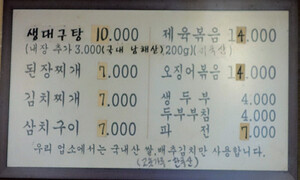 생대구탕 10.000
(내장 추가 3.000(국내 남해산)200g)
된장찌개 7.000
김치찌개 7.000
삼치구이 7.000
제육볶음 14.000
오징어볶음 14.000
생두부 4.000
두부부침 4.000
파전 7.000
우리 업소에서는 국내산 쌀, 배추김치만 사용합니다.